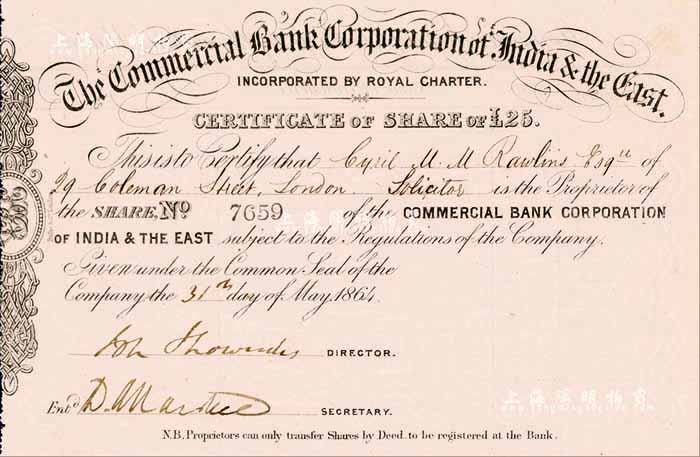 The Commercial Bank Corporation of India & the East.
INCORPORATED BY ROYAL CHARTER.
CERTIFICATE OF SHARE OF £25.
This is to Certify that Cyril M. M Rawlins Esqre of
29 Coleman Street, London. Solicitor is the Proprietor of
the SHARE, No 7659 of the COMMERCIAL BANK CORPORATION
OF INDIA & THE EAST subject to the Regulations of the Company.
Given under the Common Seal of the
Company the 31st day of May, 1864.
DIRECTOR.
Entd
SECRETARY.
N.B. Proprietors can only transfer Shares by Deed, to be registered at the Bank.